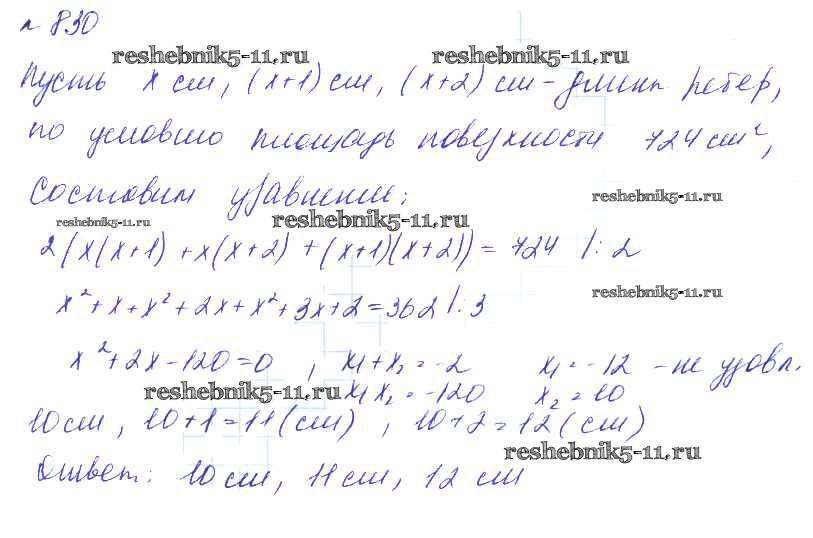 № 830
reshebnik5-11.ru reshebnik5-11.ru
Пусть x см, (x+1) см, (x+2) см - длины ребер,
по условию площадь поверхности 724 см²,
Составим уравнение: reshebnik5-11.ru
reshebnik5-11.ru reshebnik5-11.ru
2(x(x+1) + x(x+2) + (x+1)(x+2)) = 724 /: 2
reshebnik5-11.ru
x² + x + x² + 2x + x² + 3x + 2 = 362 /: 3
x² + 2x - 120 = 0 , x₁ + x₂ = -2 x₁ = -12 - не удовл.
reshebnik5-11.ru x₁ x₂ = -120 x₂ = 10
10 см, 10+1 = 11 (см) , 10+2 = 12 (см)
reshebnik5-11.ru
Ответ: 10 см, 11 см, 12 см